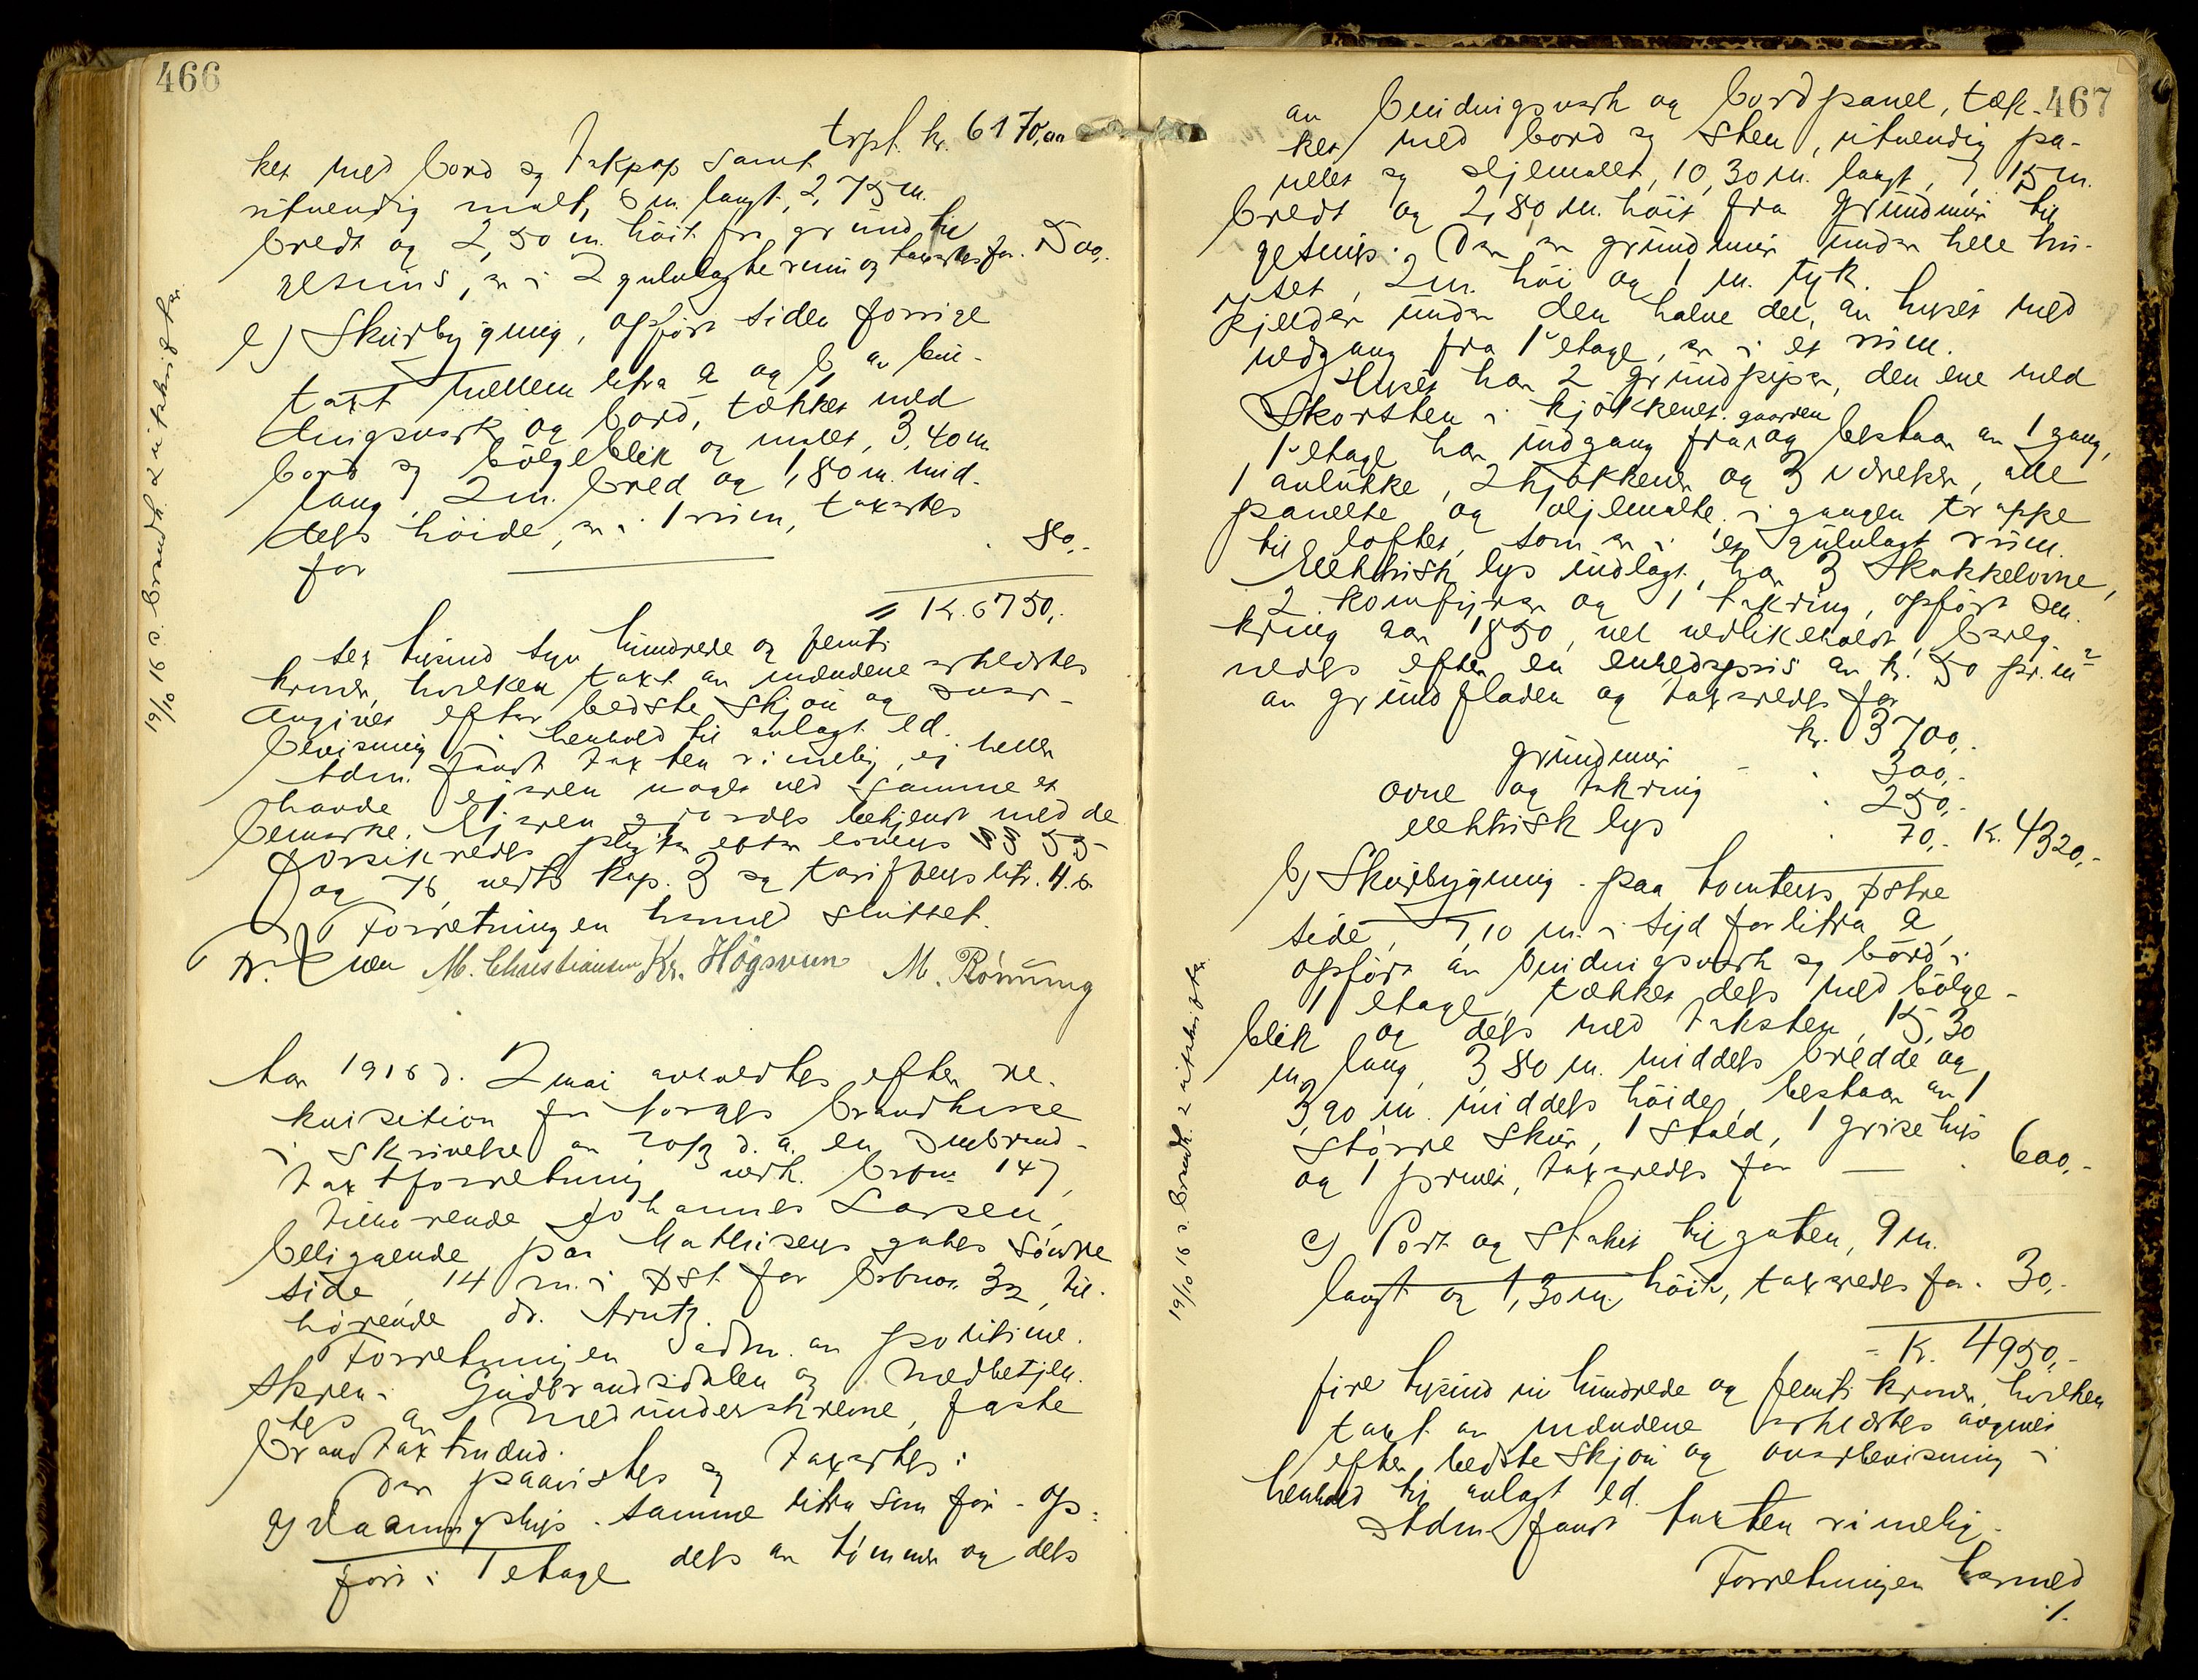 466
trpt. kr. 6170,00
ket med bord og takpap samt
utvendig malt, 6 m. langt, 2,75 m.
bredt og 2,50 m. høit fra grund til
gesims, er i 2 gulvlagte rum og takseredes for. 500,-
e) Skurbygning, opført siden forrige
takst mellem litra a og b, av bin-
dingsverk og bord, tækket med
bord og bølgeblik og malet, 3,40 m
lang, 2 m. bred og 1,80 m. mid-
dels høide, er i 1 rum, taxertes
for 80,-
= Kr. 6750,-
sex tusind syv hundrede og femti
kroner, hvilken takst av mændene erklærtes
avgivet efter bedste skjøn og over-
bevisning i henhold til avlagt ed.
Adm. fandt taxten rimelig, ei heller
havde eieren noget ved samme at
bemerke. Eieren gjordes bekjent med de
forsikredes pligter efter lovens §§ 55
og 76, vedts kap. 3 og tariffens litr. 4. b.
Forretningen hermed sluttet.
M. Christiansen Kr. Høgsveen M. Rönning
Aar 1916 d. 2 mai avholdtes efter re-
kvisition fra Norges Brandkasse
i skrivelse av 20/3 d. a. en ombrand-
taxtforretning vedk. brbnr. 147,
tilhørende Johannes Larsen,
beliggende paa Mathisens gates søndre
side, 14 m. i øst for brbnr. 32, til-
hørende dr. Arntz.
Forretningen adm. av politime-
steren i Gudbrandsdalen og medbetjen-
tes av medunderskrevne, faste
brandtaxtmænd.
Der paavistes og taxertes:
a) Vaaningshus. samme litra som før - op-
ført i 1 etage dels av tømmer og dels
19/10 16 s. brandk. 2 utskrifter.
467
av bindingsverk og bordpanel, tæk-
ket med bord og sten, utvendig pa-
nelet og oljemalet, 10,30 m. langt, 7,15 m.
bredt og 2,80 m. høit fra grundmur til
gesims. Der er grundmur under hele hu-
set, 2 m. høi og 1 m. tyk.
Kjelder under den halve del av huset med
nedgang fra 1 etage, er i et rum.
Huset har 2 grundpiper, den ene med
Skorsten i kjøkkenet.
gaarden
1 etage har indgang fra og bestaar av 1 gang,
1 avlukke, 2 kjøkkener og 3 værelser, alle
panelte og oljemalte. i gangen trappe
til loftet, som er i et gulvlagt rum.
Elektrisk lys indlagt, har 3 skakkelovne,
2 komfyrer og 1 takring, opført om-
kring aar 1850, vel vedlikeholdt, bereg-
nedes efter en enhedspris av kr. 50 pr. m²
av grundfladen og taxeredes for
kr. 3700,-
grundmur - 300,-
ovne og takring 250,-
elektrisk lys 70,- Kr. 4320,-
b) Skurbygning - paa tomtens østre
side, 7,10 m. i syd for litra a,
opført av bindingsverk og bord i
1 etage, tækket dels med bølge-
blik og dels med taksten, 15,30
m. lang, 3,80 m. middels bredde og
3,90 m. middels høide, bestaar av 1
større skur, 1 stald, 1 grisehus
og 1 privet, taxeredes for 600,-
c) Port og staket til gaten, 9 m.
langt og 1,30 m. høit, taxeredes for. 30,-
= Kr. 4950,-
fire tusind ni hundrede og femti kroner, hvilken
taxt av mændene erklærtes avgivet
efter bedste skjøn og overbevisning i
henhold til avlagt ed.
Adm. fandt taxten rimelig.
Forretningen hermed
./.
19/10 16 s. brandk. 2 utskrifter.